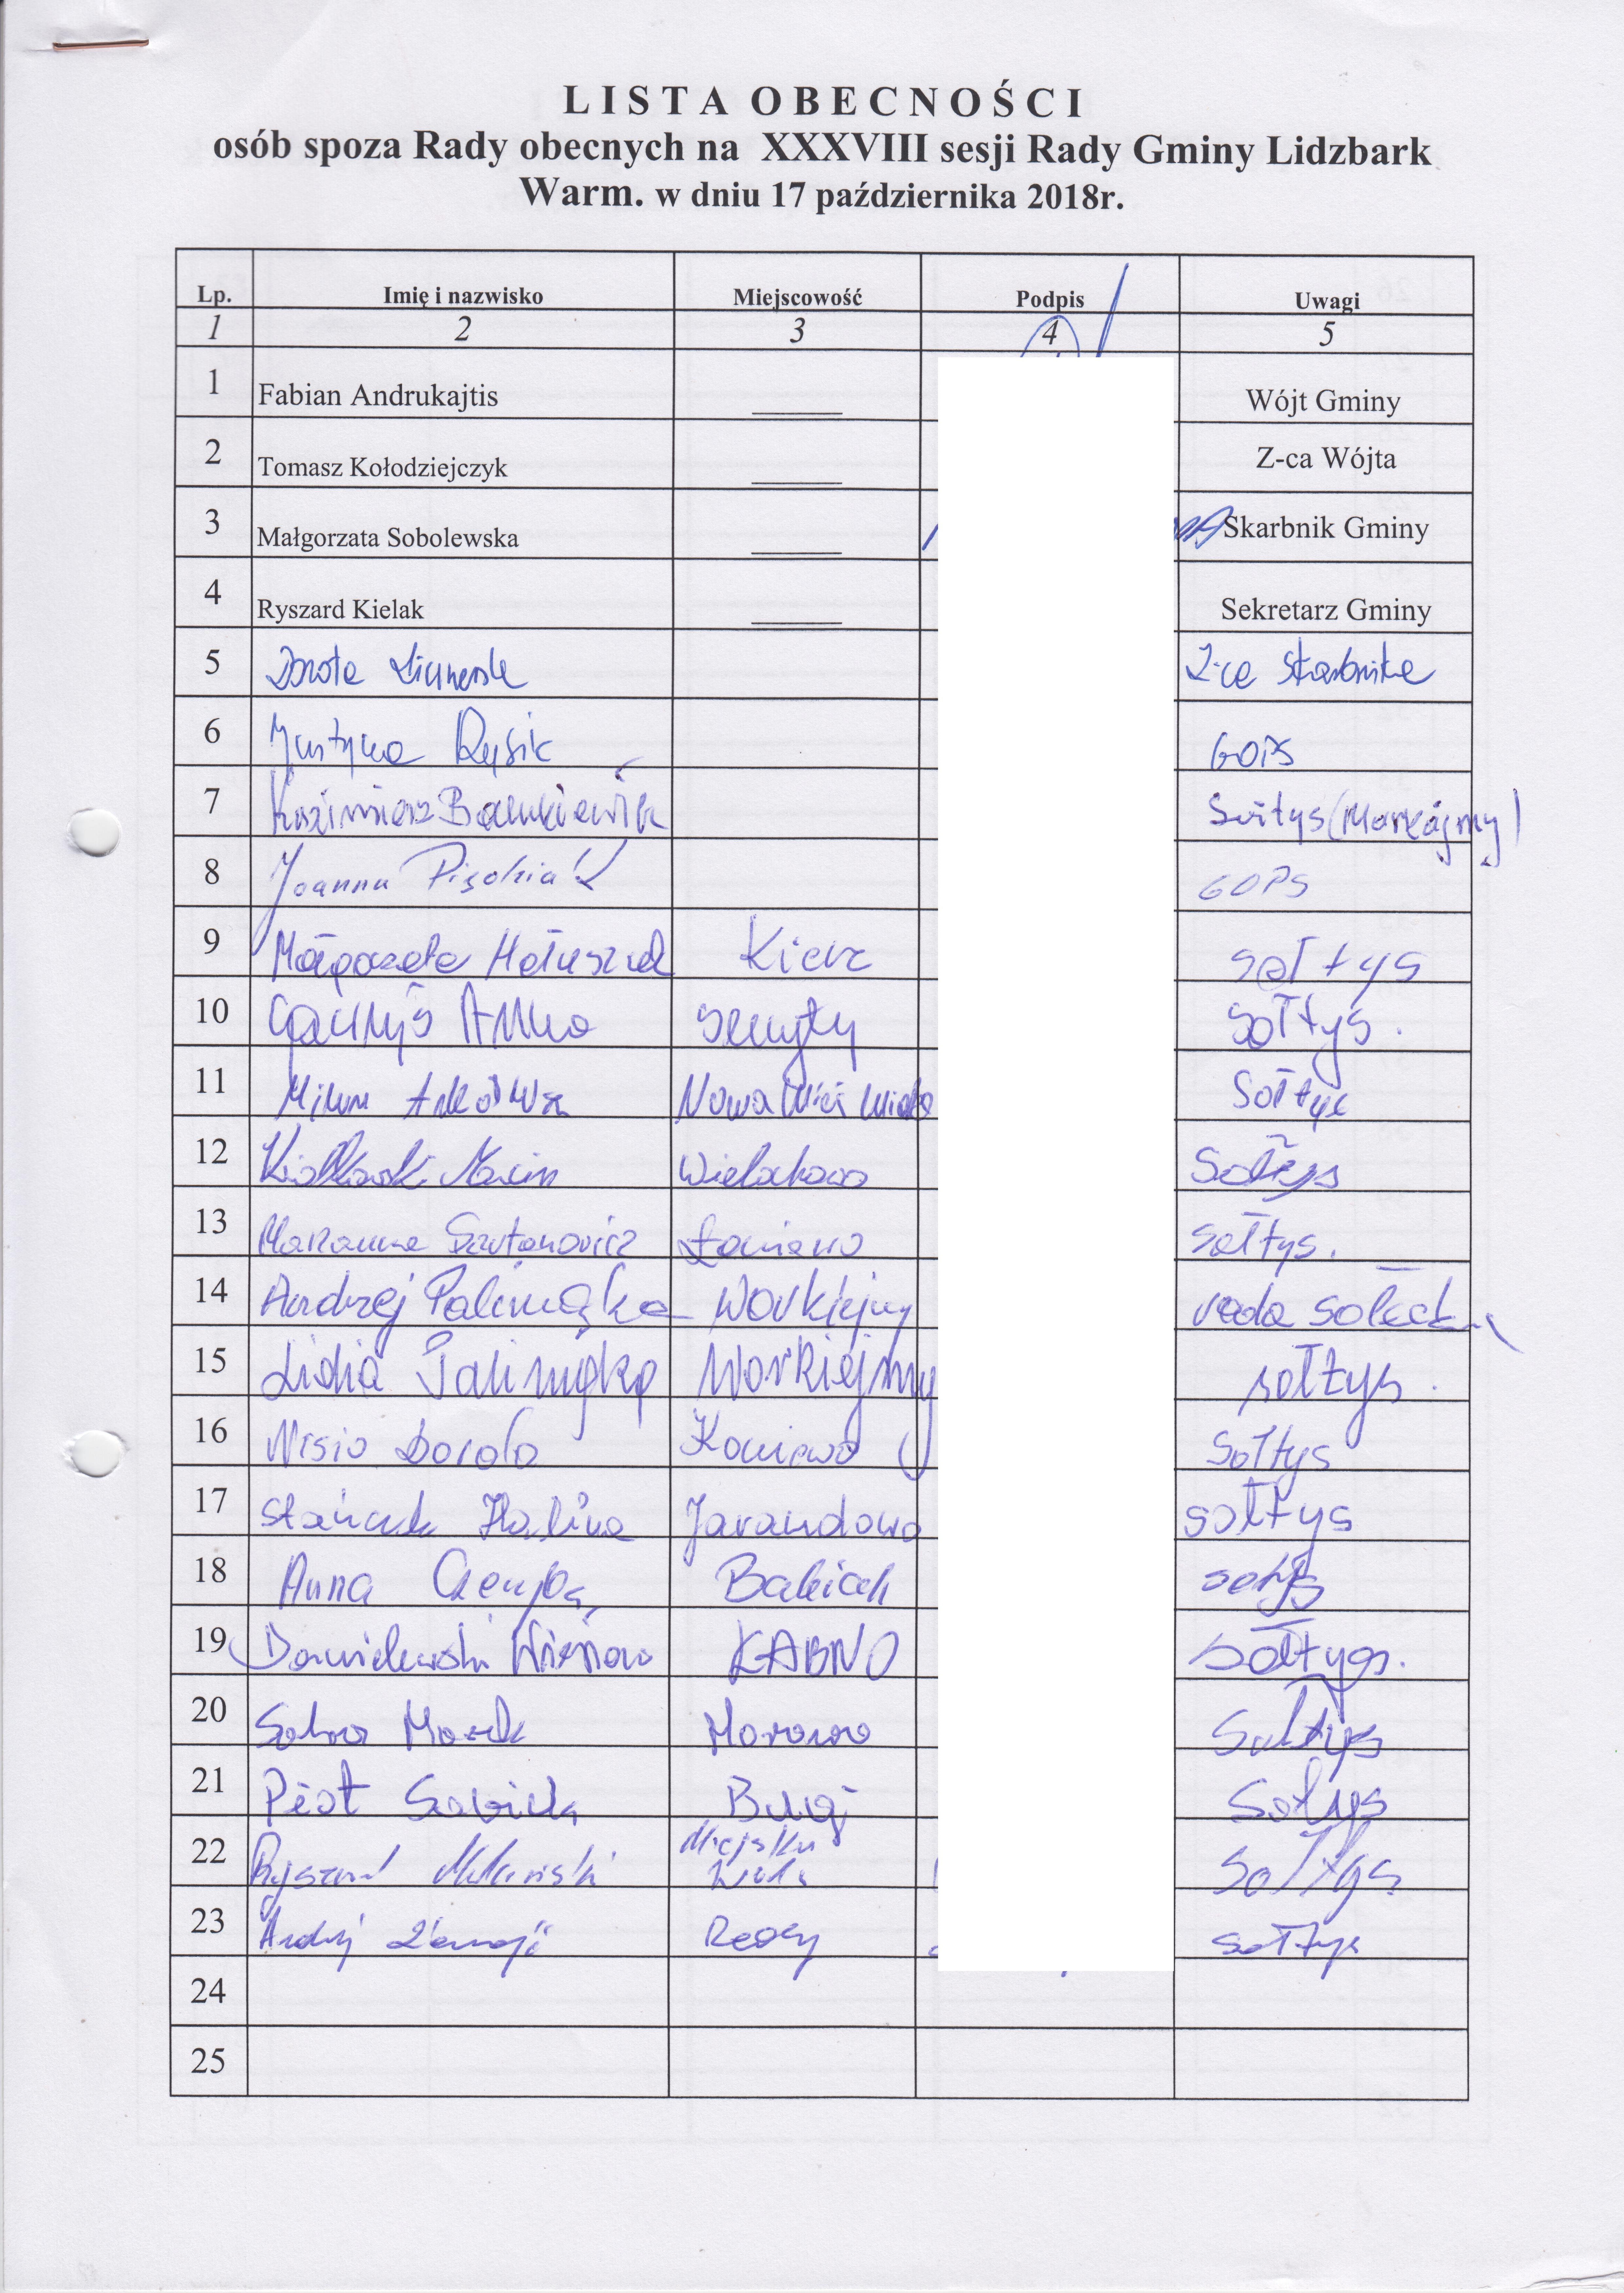 LISTA OBECNOŚCI
osób spoza Rady obecnych na XXXVIII sesji Rady Gminy Lidzbark
Warm. w dniu 17 października 2018r.
Lp. Imię i nazwisko Miejscowość Podpis Uwagi
1 2 3 4 5
1 Fabian Andrukajtis Wójt Gminy
2 Tomasz Kołodziejczyk Z-ca Wójta
3 Małgorzata Sobolewska Skarbnik Gminy
4 Ryszard Kielak Sekretarz Gminy
5 Dorota Z-ca Skarbnika
6 Justyna Rysik GOPS
7 Kazimierz Sołtys (Markajmy)
8 Joanna GOPS
9 Małgorzata Hałuszczak Kierz sołtys
10 Anna sołtys.
11 Nowa Wieś Wielka Sołtys
12 Marcin Wielochowo Sołtys
13 Marianna Łaniewo sołtys.
14 Andrzej Palimąka Workiejmy rada sołecka
15 Lidia Palimąka Workiejmy sołtys.
16 Misio Dorota Koniewo Sołtys
17 Halina Jarandowo sołtys
18 Anna Babiak sołtys
19 Danielewski ŁABNO sołtys.
20 Morawa Sołtys
21 Piotr Bugi Sołtys
22 Ryszard Miejska Wola Sołtys
23 Andrzej Redy sołtys
24
25